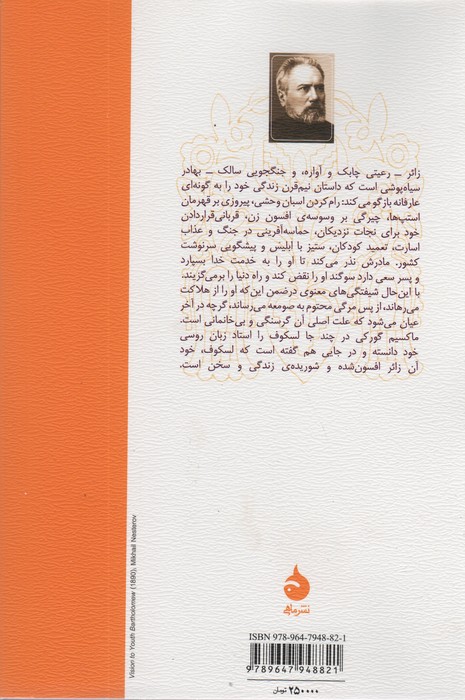 زائر ـ رعیتی چابک و آواره، و جنگجویی سالک ـ بهادر
سیاه‌پوشی است که داستان نیم‌قرن زندگی خود را به گونه‌ای
عارفانه بازگو می‌کند: رام کردن اسبان وحشی، پیروزی بر قهرمان
استپ‌ها، چیرگی بر وسوسه‌ی افسون زن، قربانی‌قراردادن
خود برای نجات نزدیکان، حماسه‌آفرینی در جنگ و عذاب
اسارت، تعمید کودکان، ستیز با ابلیس و پیشگویی سرنوشت
کشور. مادرش نذر می‌کند تا او را به خدمت خدا بسپارد
و پسر سعی دارد سوگند او را نقض کند و راه دنیا را برمی‌گزیند.
با این‌حال شیفتگی‌های معنوی درضمن این که او را از هلاکت
می‌رهاند، از پس مرگی محتوم به صومعه می‌رساند، گرچه در آخر
عیان می‌شود که علت اصلی آن گرسنگی و بی‌خانمانی است.
ماکسیم گورکی در چند جا لسکوف را استاد زبان روسی
خود دانسته و در جایی هم گفته است که لسکوف، خود
آن زائر افسون‌شده و شوریده‌ی زندگی و سخن است.
Vision to Youth Bartholomew (1890), Mikhail Nesterov
نشر ماهی
ISBN 978-964-7948-82-1
9 789647 948821
۲۵۰۰۰۰ تومان